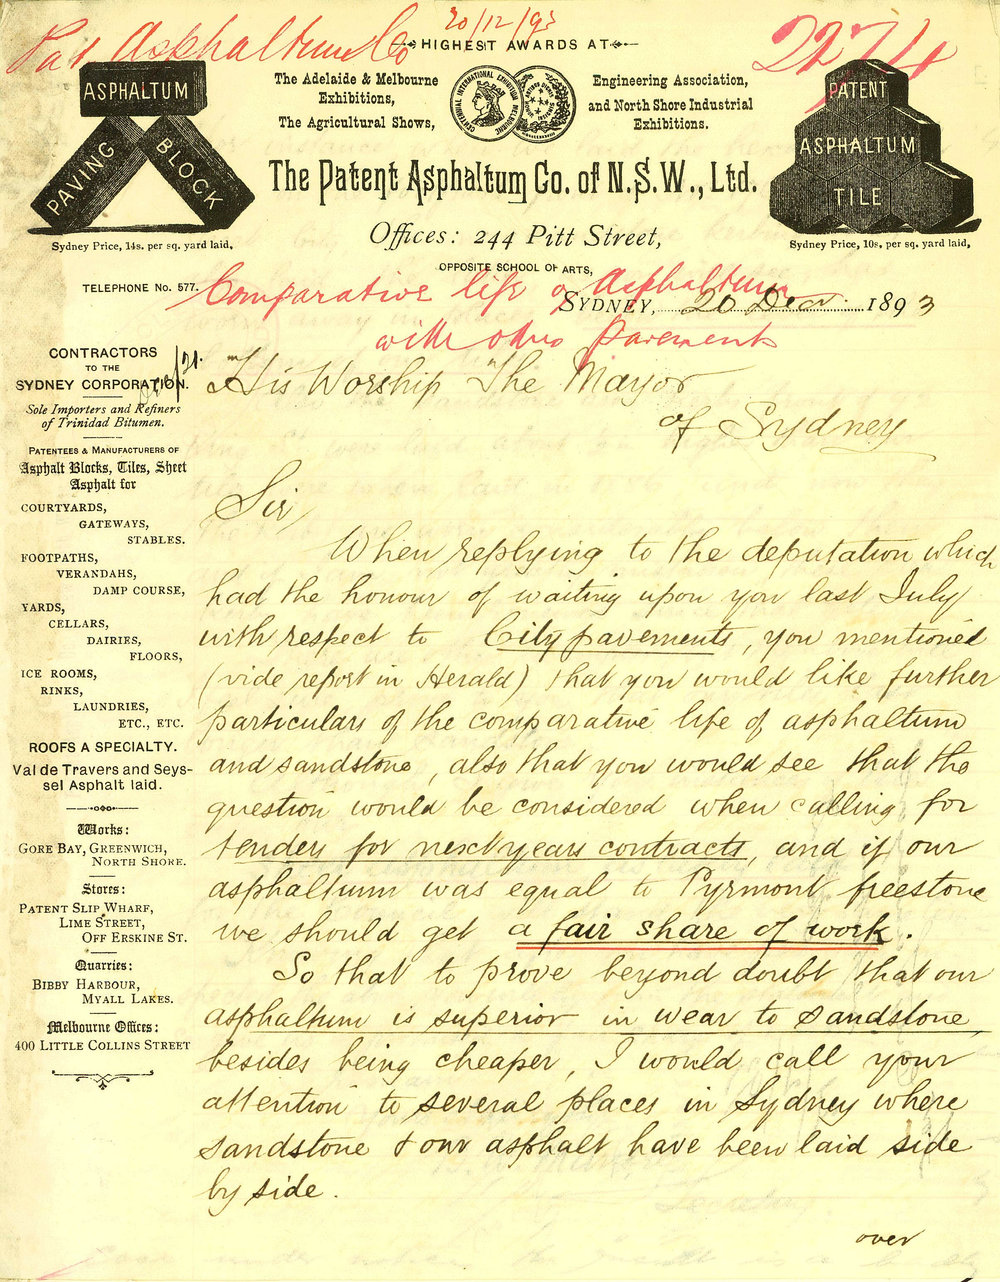 Pat. Asphaltum Co
20/12/93
2274
HIGHEST AWARDS AT
The Adelaide & Melbourne
Exhibitions,
The Agricultural Shows,
CENTENNIAL INTERNATIONAL EXHIBITION MELBOURNE
Engineering Association,
and North Shore Industrial
Exhibitions.
ASPHALTUM
PAVING
BLOCK
Sydney Price, 14s. per sq. yard laid.
PATENT
ASPHALTUM
TILE
Sydney Price, 10s. per sq. yard laid,
The Patent Asphaltum Co. of N.S.W., Ltd.
Offices: 244 Pitt Street,
OPPOSITE SCHOOL OF ARTS,
TELEPHONE No. 577.
Comparative life of Asphaltum
with other pavements
SYDNEY, 20 Decr. 1893
CONTRACTORS
TO THE
SYDNEY CORPORATION.
Sole Importers and Refiners
of Trinidad Bitumen.
PATENTEES & MANUFACTURERS OF
Asphalt Blocks, Tiles, Sheet
Asphalt for
COURTYARDS,
GATEWAYS,
STABLES.
FOOTPATHS,
VERANDAHS,
DAMP COURSE,
YARDS,
CELLARS,
DAIRIES,
FLOORS,
ICE ROOMS,
RINKS,
LAUNDRIES,
ETC., ETC.
ROOFS A SPECIALTY.
Val de Travers and Seys-
sel Asphalt laid.
Works:
GORE BAY, GREENWICH,
NORTH SHORE.
Stores:
PATENT SLIP WHARF,
LIME STREET,
OFF ERSKINE ST.
Quarries:
BIBBY HARBOUR,
MYALL LAKES.
Melbourne Offices:
400 LITTLE COLLINS STREET
His Worship The Mayor
of Sydney
Sir,
When replying to the deputation which
had the honour of waiting upon you last July
with respect to City pavements, you mentioned
(vide report in Herald) that you would like further
particulars of the comparative life of asphaltum
and sandstone, also that you would see that the
question would be considered when calling for
tenders for next years contracts, and if our
asphaltum was equal to Pyrmont freestone
we should get a fair share of work.
So that to prove beyond doubt that our
asphaltum is superior in wear to sandstone,
besides being cheaper, I would call your
attention to several places in Sydney where
sandstone & our asphalt have been laid side
by side.
over